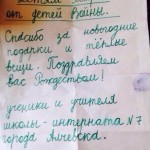 от детей Войны.
Спасибо за новогодние
подарки и тёплые
вещи. Поздравляем
вас Рождеством!
ученики и учителя
школы-интерната N7
города Алчевска.